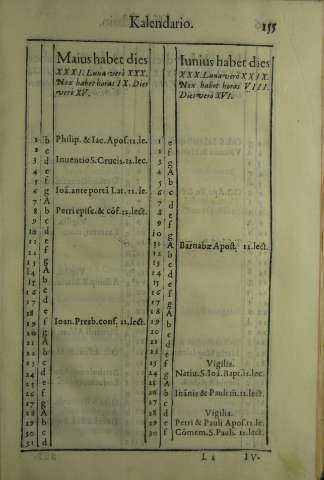 Kalendario.
155
Maius habet dies
XXXI. Luna verò XXX.
Nox habet horas IX. Dies
verò XV.
1 b Philip. & Iac. Apos. 12. le.
2 c
3 d Inuentio S. Crucis. 12. lec.
4 e
5 f
6 g Ioã. ante portã Lat. 12. le.
7 A
8 b Petri episc. & cõf. 12. lect.
9 c
10 d
11 e
12 f
13 g
14 A
15 b
16 c
17 d
18 e
19 f Ioan. Presb. conf. 12. lect.
20 g
21 A
22 b
23 c
24 d
25 e
26 f
27 g
28 A
29 b
30 c
31 d
Iunius habet dies
XXX. Luna verò XXIX.
Nox habet horas VIII.
Dies verò XVI.
1 e
2 f
3 g
4 A
5 b
6 c
7 d
8 e
9 f
10 g
11 A Barnabæ Apost. 12. lect.
12 b
13 c
14 d
15 e
16 f
17 g
18 A
19 b
20 c
21 d
22 e
23 f Vigilia.
24 g Natiu. S. Ioã. Bapt. 12. lec.
25 A
26 b Ioãnis & Pauli m̃. 12. lect.
27 c
28 d Vigilia.
29 e Petri & Pauli Apos. 12. le.
30 f Cõmem. S. Pauli. 12. lect.
IV-